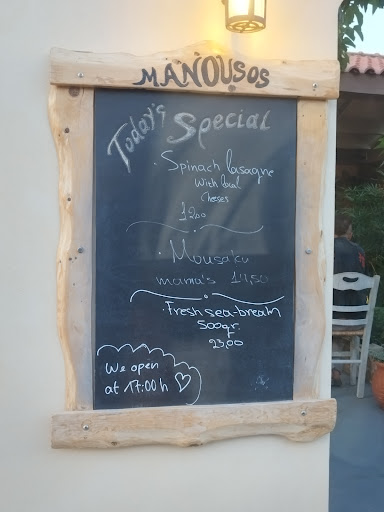 MANOUSOS
Today's Special
· Spinach lasagne
With local
Cheeses
12,00
· Mousaka
mama's 14,50
· Fresh sea-bream
500gr.
23,00
We open
at 17:00 h